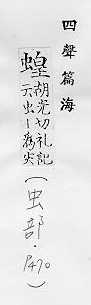 四聲篇海
蝗胡光切礼記
云虫丨為災
(虫部·P470)